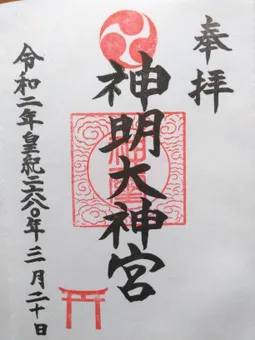 奉拝
神明大神宮
令和二年皇紀二六八〇年三月二十日